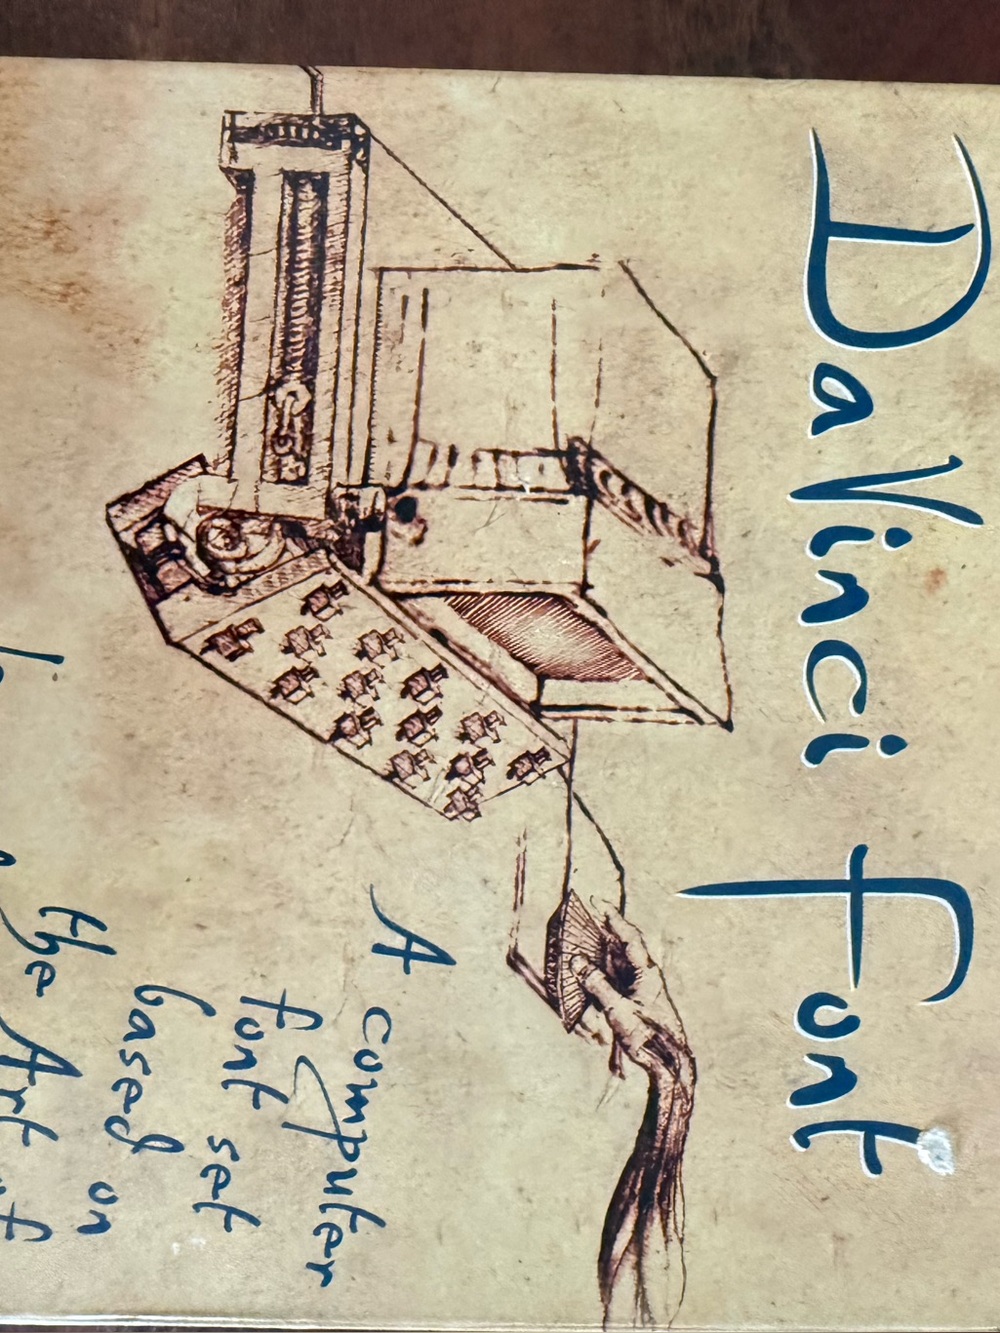 DaVinci Font
A computer
font set
based on
the Art of